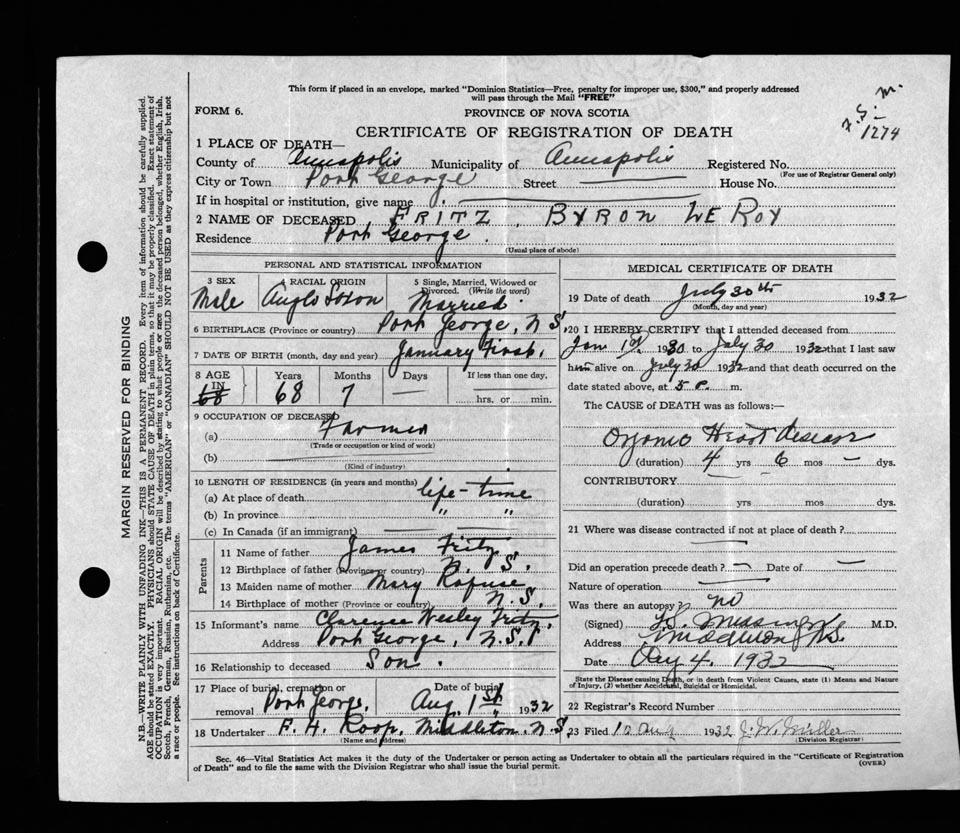 This form if placed in an envelope, marked "Dominion Statistics—Free, penalty for improper use, $300," and properly addressed
will pass through the Mail "FREE"
FORM 6.
PROVINCE OF NOVA SCOTIA
1274
CERTIFICATE OF REGISTRATION OF DEATH
1 PLACE OF DEATH—
County of Annapolis Municipality of Annapolis Registered No.
(For use of Registrar General only)
City or Town Port George Street House No.
If in hospital or institution, give name
2 NAME OF DECEASED FRITZ, BYRON LE ROY
Residence Port George.
(Usual place of abode)
PERSONAL AND STATISTICAL INFORMATION
3 SEX 4 RACIAL ORIGIN 5 Single, Married, Widowed or Divorced. (Write the word)
Male Anglo Saxon Married
6 BIRTHPLACE (Province or country) Port George, N S
7 DATE OF BIRTH (month, day and year) January First.
8 AGE IN Years Months Days If less than one day.
68 68 7 — hrs. or min.
9 OCCUPATION OF DECEASED
(a) Farmer
(Trade or occupation or kind of work)
(b)
(Kind of industry)
10 LENGTH OF RESIDENCE (in years and months)
(a) At place of death life-time
(b) In province " "
(c) In Canada (if an immigrant)
Parents
11 Name of father James Fritz
12 Birthplace of father (Province or country) N. S.
13 Maiden name of mother Mary Rafuse
14 Birthplace of mother (Province or country) N. S.
15 Informant's name Clarence Wesley Fritz
Address Port George, N.S.
16 Relationship to deceased Son.
17 Place of burial, cremation or removal Port George. Date of burial Aug. 1st 1932
18 Undertaker F. H. Roop. Middleton. N.S.
(Name and address)
MEDICAL CERTIFICATE OF DEATH
19 Date of death July 30th 1932
(Month, day and year)
20 I HEREBY CERTIFY that I attended deceased from
Jan 1st 1930 to July 30 1932 that I last saw
him alive on July 30 1932 and that death occurred on the
date stated above, at 5 P. m.
The CAUSE OF DEATH was as follows:—
Organic Heart disease
(duration) 4 yrs 6 mos — dys.
CONTRIBUTORY
(duration) yrs mos dys.
21 Where was disease contracted if not at place of death?
Did an operation precede death? — Date of —
Nature of operation
Was there an autopsy? no
(Signed) M.D.
Address Middleton N.S.
Date Aug 4. 1932
State the Disease causing Death, or in death from Violent Causes, state (1) Means and Nature
of Injury, (2) whether Accidental, Suicidal or Homicidal.
22 Registrar's Record Number
23 Filed 10 Aug 1932 J. W. Miller
(Division Registrar)
Sec. 46—Vital Statistics Act makes it the duty of the Undertaker or person acting as Undertaker to obtain all the particulars required in the "Certificate of Registration
of Death" and to file the same with the Division Registrar who shall issue the burial permit.
(OVER)
MARGIN RESERVED FOR BINDING
N.B.—WRITE PLAINLY WITH UNFADING INK—THIS IS A PERMANENT RECORD. Every item of information should be carefully supplied.
AGE should be stated EXACTLY. PHYSICIANS should STATE CAUSE OF DEATH in plain terms, so that it may be properly classified. Exact statement of
OCCUPATION is very important. RACIAL ORIGIN will be described by stating to what people or race the deceased person belonged, whether English, Irish,
Scotch, French, German, Russian, Ruthenian, etc. The terms "AMERICAN" or "CANADIAN" SHOULD NOT BE USED as they express citizenship but not
a race or people. See instructions on back of Certificate.